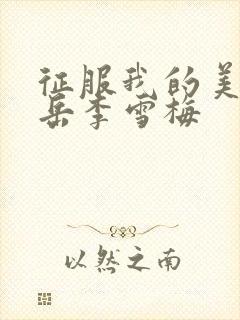 征服我的美
岳李雪梅
以然之南